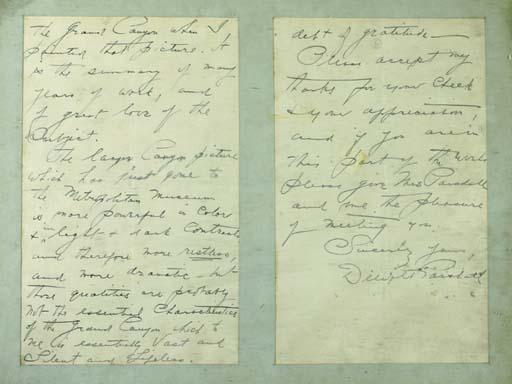 the Grand Canyon when I
painted that picture. It
is the summary of many
years of work, and
of great love of the
Subject.
The larger Canyon picture
which has just gone to
the Metropolitan Museum
is more powerful in Color
& in light & dark Contrasts
and therefore more restless,
and more dramatic - but
those qualities are probably
not the essential Characteristics
of the Grand Canyon which to
me is essentially Vast and
Silent and Lifeless.
debt of gratitude —
Please accept my
thanks for your Check
& your appreciation,
and if you are in
this part of the World
please give Mrs Parshall
and me the pleasure
of meeting you.
Sincerely yours,
DeWitt Parshall